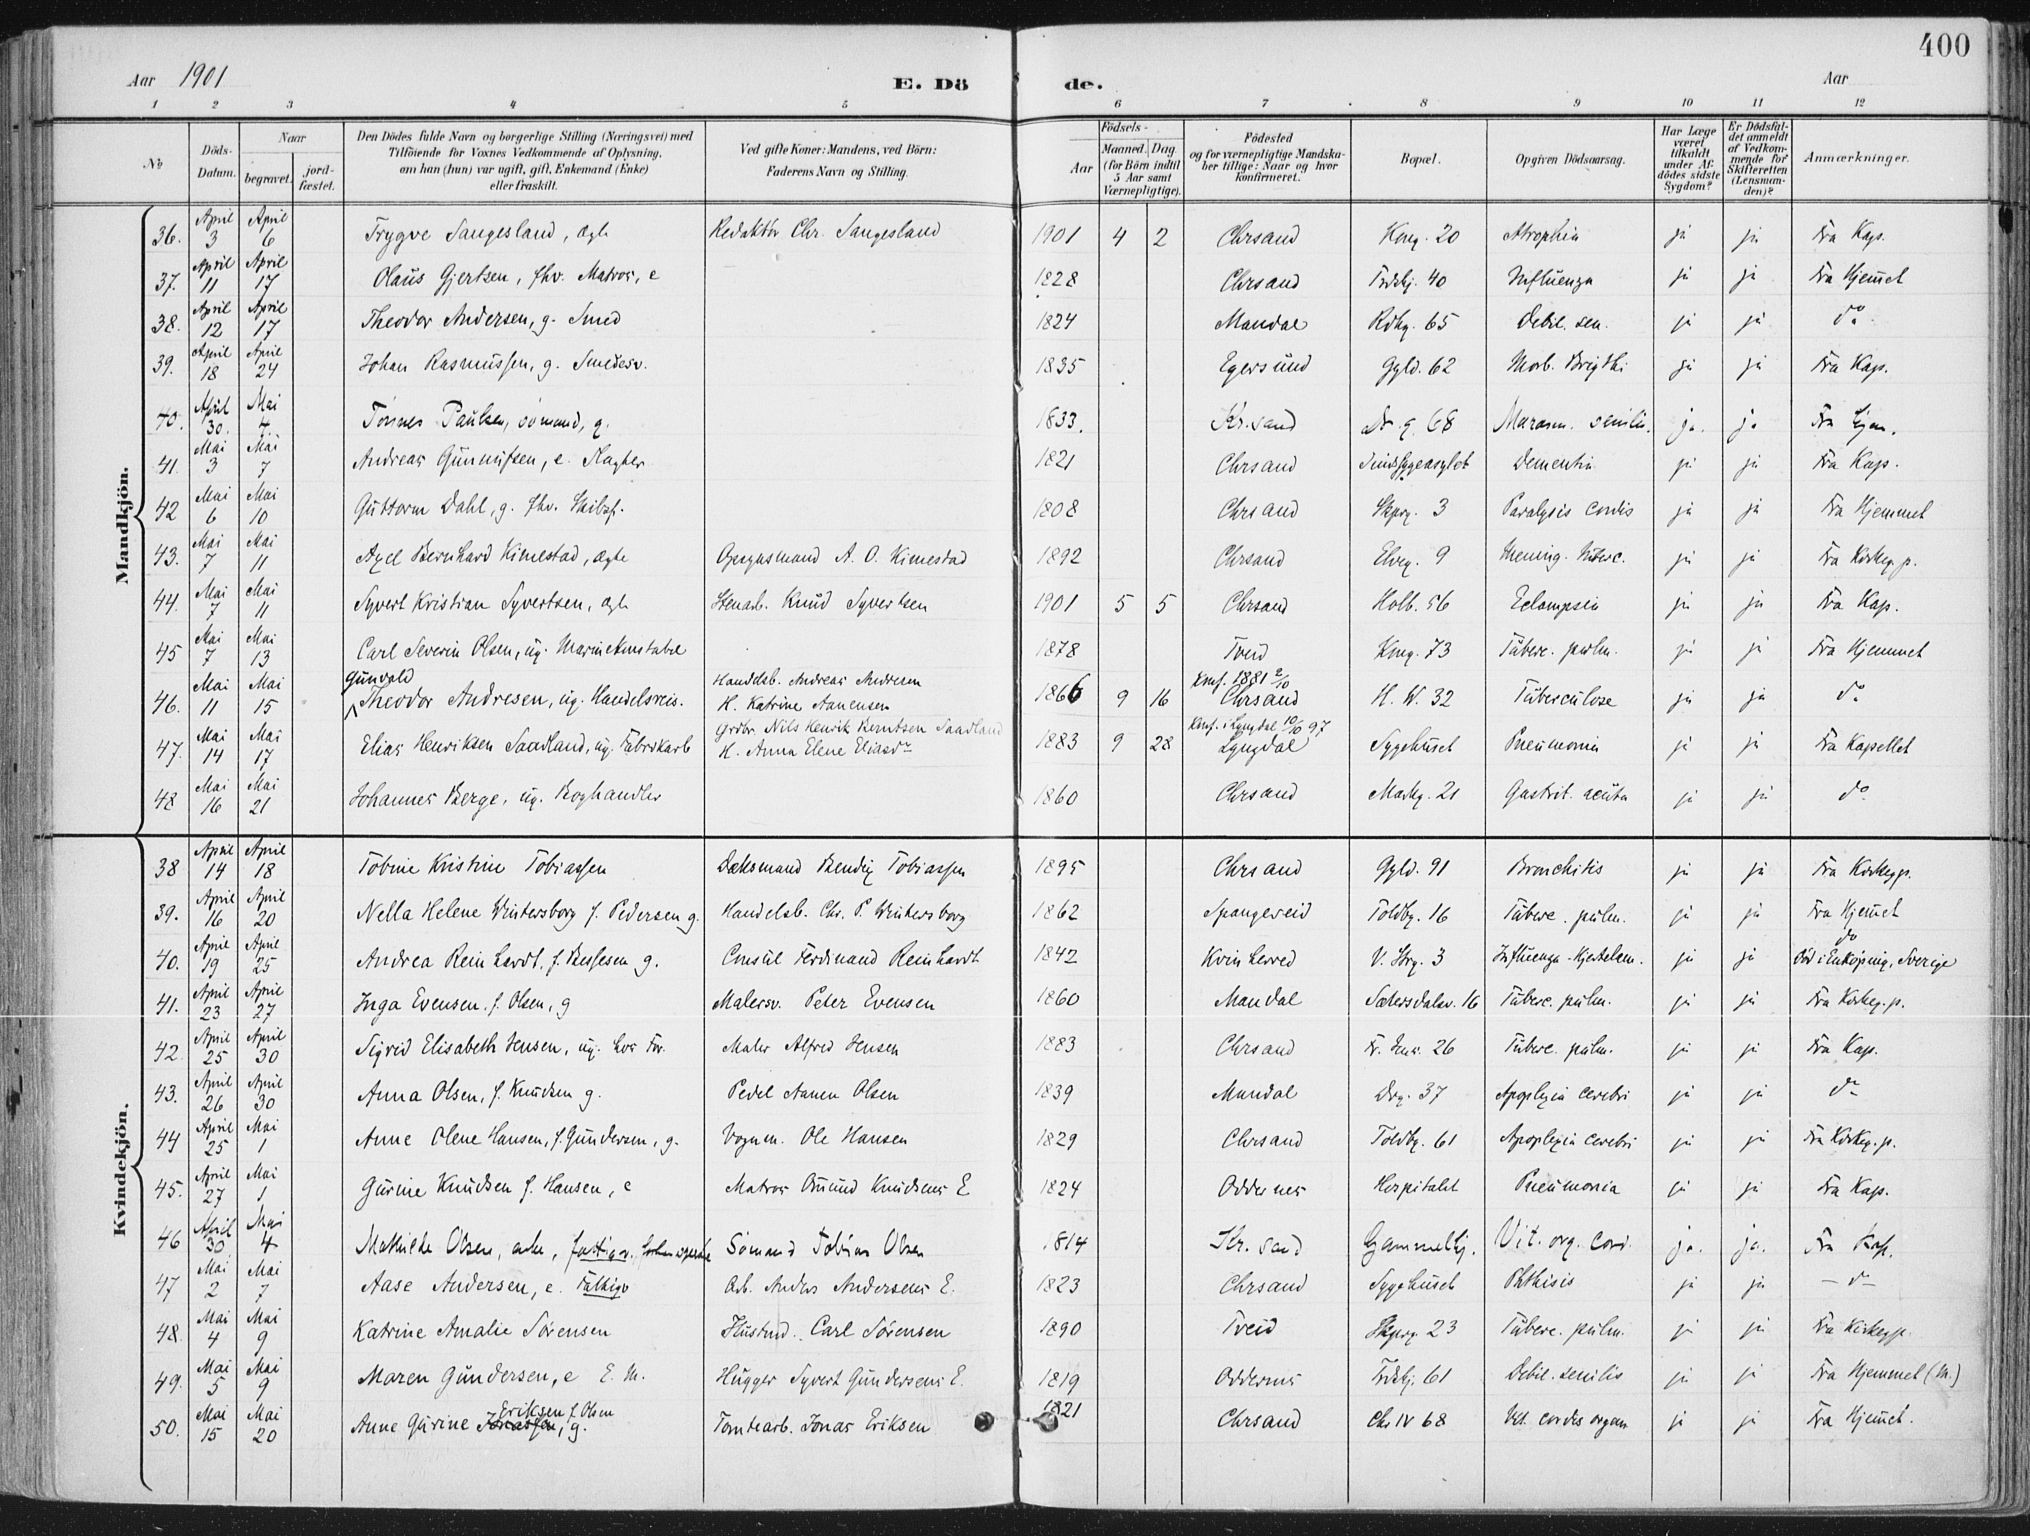 400
Aar 1901
E. Dö de.
Aar
1 2 3 4 5 6 7 8 9 10 11 12
No
Döds-Datum.
Naar
begravet.
jord-fæstet.
Den Dödes fulde Navn og borgerlige Stilling (Næringsvei) med
Tilföiende for Voxnes Vedkommende af Oplysning,
om han (hun) var ugift, gift, Enkemand (Enke)
eller fraskilt.
Ved gifte Koner: Mandens, ved Börn:
Faderens Navn og Stilling.
Födsels-
Aar
Maaned. Dag
(for Börn indtil
5 Aar samt
Værnepligtige).
Födested
og for værnepligtige Mandska-
ber tillige: Naar og hvor
konfirmeret.
Bopæl.
Opgiven Dödsaarsag.
Har Læge
været
tilkaldt
under Af-
dödes sidste
Sygdom?
Er Dödsfal-
det anmeldt
af Vedkom-
mende for
Skifteretten
(Lensman-
den)?
Anmærkninger.
Mandkjön.
36. April 3 April 6 Trygve Sangesland, ægte Redaktør Chr. Sangesland 1901 4 2 Chrsand Kong. 20 Atrophia ja ja Fra Kap.
37. April 11 April 17 Olaus Gjertsen, fhv. Matros, e 1828 Chrsand Frdskj. 40 Influenza ja ja Fra Hjemmet
38. April 12 April 17 Theodor Andersen, g. Smed 1824 Mandal Rdhg. 65 Debil. sen. ja ja do
39. April 18 April 24 Johan Rasmussen, g. Smedesv. 1835 Egersund Gyld. 62 Morb. Brigthi ja ja Fra Kap.
40. April 30. Mai 4. Tønnes Paulsen, sømand, g. 1833. Kr.sand Dr. g. 68 Marasm. senilis. ja. ja Fra Hjem.
41. Mai 3 Mai 7 Andreas Gunnufsen, e. 1821 Chrsand Sindssygeasylet Dementia ja ja Fra Kap.
42 Mai 6 Mai 10 Guttorm Dahl, g. fhv. Skibsf. 1808 Chrsand Skprg. 3 Paralysis cordis ja ja Fra Hjemmet
43. Mai 7 Mai 11 Axel Bernhard Kimestad, ægte Opsynsmand A. O. Kimestad 1892 Chrsand Elveg. 9 Mening. tuberc. ja ja Fra Kirkeg. p.
44. Mai 7 Mai 11 Syvert Kristian Syvertsen, ægte Stenarb. Knud Syvertsen 1901 5 5 Chrsand Holb. 56 Eclampsia ja ja Fra Kap.
45 Mai 7 Mai 13 Carl Severin Olsen, ug. Marinekonstabel 1878 Tveid Kong. 73 Tuberc. pulm. ja ja Fra Hjemmet
46. Mai 11 Mai 15 Gunvald Theodor Andresen, ug. Handelsreis. Handelsb. Andreas Andresen H. Katrine Aanensen 1866 9 16 Konf. 1881 2/10 Chrsand H. W. 32 Tuberculose ja ja do
47. Mai 14 Mai 17 Elias Henriksen Saadland, ug. Fabrikarb Grdbr. Nils Henrik Berntsen Saadland H. Anna Elene Eliasdr 1883 9 28 Konf. i Lyngdal 10/10 97 Lyngdal Sygehuset Pneumonia ja ja Fra Kapellet
48 Mai 16 Mai 21 Johannes Berge, ug. Boghandler 1860 Chrsand Markg. 21 Gastrit. acuta ja ja do
Kvindekjön.
38 April 14 April 18 Tobine Kristine Tobiassen Dæksmand Bendix Tobiassen 1895 Chrsand Gyld. 91 Bronchitis ja ja Fra Kirkegp.
39. April 16 April 20 Nella Helene Wintersborg f. Pedersen g. Handelsb. Chr. P. Wintersborg 1862 Spangereid Toldbg. 16 Tuberc. pulm. ja ja Fra Hjemmet
40. April 19 April 25 Andrea Reinhardt, f. g. Consul Ferdinand Reinhardt 1842 Kvinherred V. Strg. 3 Influenza - ja ja do Död i Enköping, Sverige
41. April 23 April 27 Inga Evensen, f. Olsen, g Malersv. Peter Evensen 1860 Mandal Sætersdalsv. 16 Tuberc. pulm. ja ja Fra Kirkeg. p.
42. April 25 April 30 Sigrid Elisabeth Jensen, ug. hos For. Maler Alfred Jensen 1883 Chrsand 26 Tuberc. pulm. ja ja Fra Kap.
43. April 26 April 30 Anna Olsen, f. Knudsen g. Pedel Aanen Olsen 1839 Mandal Drg. 37 Apoplexia cerebri ja ja do
44 April 25 Mai 1 Anne Olene Hansen, f. Gundersen, g. Vognm. Ole Hansen 1829 Chrsand Toldbg. 61 Apoplexia cerebri ja ja Fra Kirkeg. p.
45. April 27 Mai 1 Gurine Knudsen f. Hansen, e Matros Omund Knudsens E 1824 Oddernes Hospitalet Pneumonia ja ja Fra Kap.
46 April 30 Mai 4 Mathilde Olsen, enke, fattigv. Sømand Tobias Olsen 1814 Kr. sand Gammelhj. Vit. org. cord. ja. ja. Fra Kap.
47 Mai 2 Mai 7 Aase Andersen, e. Fattigv Arb. Anders Andersens E. 1823 Chrsand Sygehuset Phthisis ja ja - do -
48. Mai 4 Mai 9 Katrine Amalie Sörensen Carl Sörensen 1890 Tveid Skprg. 23 Tuberc. pulm. ja ja Fra Kirkegp.
49. Mai 5 Mai 9 Maren Gundersen, e E. M. Hugger Syvert Gundersens E. 1819 Oddernes Frdskj. 61 Debil. senilis ja ja Fra Hjemmet (M.)
50. Mai 15 Mai 20 Anne Gurine Jonassen, Eriksen f. Olsen g. Tomtearb. Jonas Eriksen 1821 Chrsand Chr IV 68 Vit. cordis organ ja ja Fra Hjemmet.